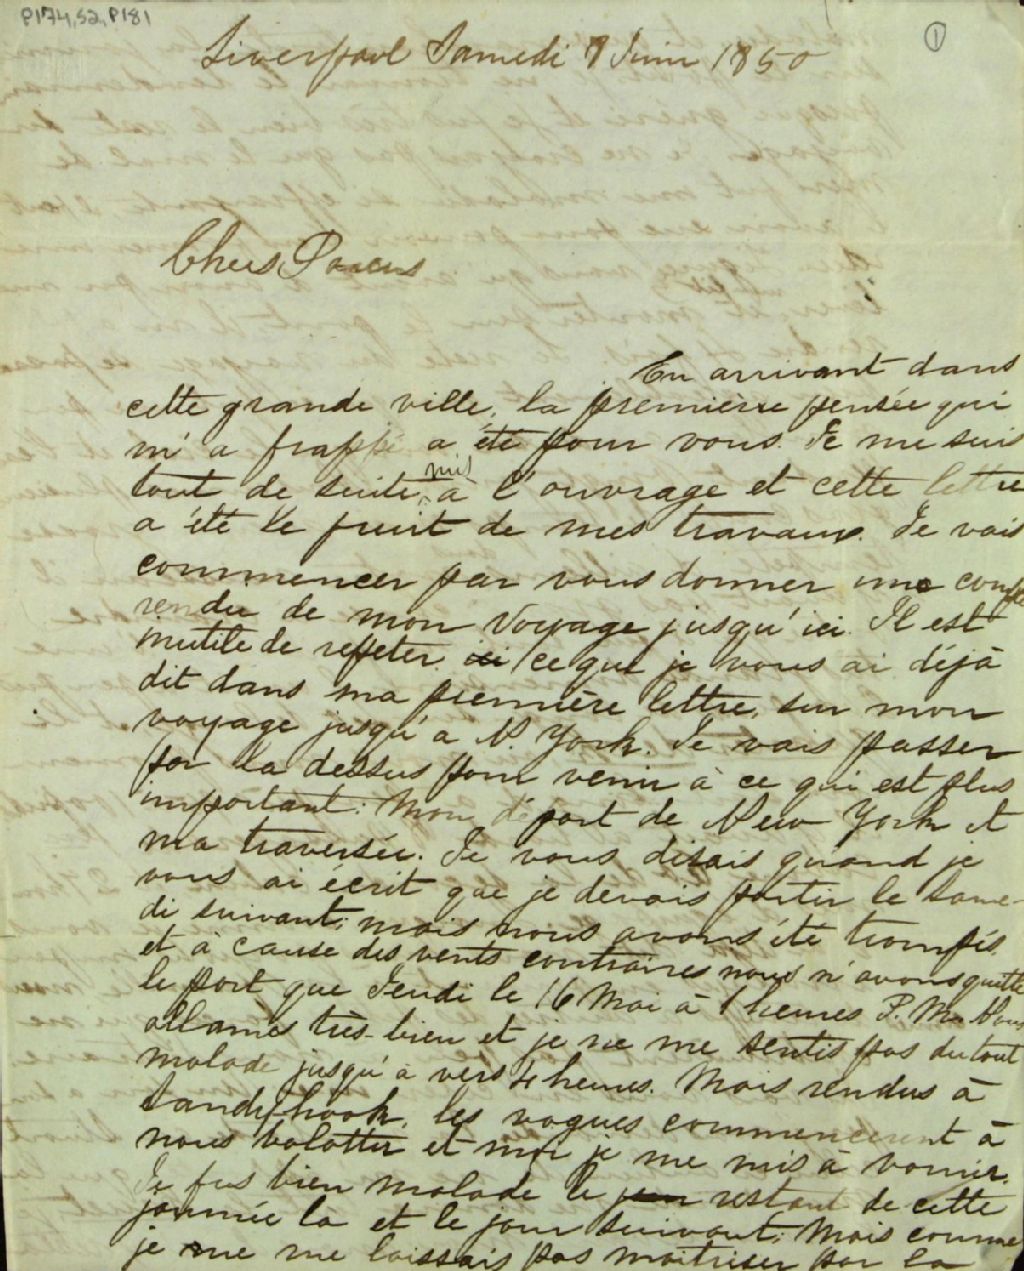 P174,S2,P181
1
Liverpool Samedi 8 Juin 1850
Chers Parens
En arrivant dans
cette grande ville, la première pensée qui
m'a frappé a été pour vous. Je me suis
tout de suite mis à l'ouvrage et cette lettre
a été le fruit de mes travaux. Je vais
commencer par vous donner une compte
rendu de mon voyage jusqu'ici. Il est
inutile de repeter ici ce que je vous ai déjà
dit dans ma première lettre, sur mon
voyage jusqu'à N. York. Je vais passer
par la dessus pour venir à ce qui est plus
important: Mon départ de New York et
ma traversée. Je vous disais quand je
vous ai écrit que je devais partir le Same-
di suivant; mais nous avons été trompés
et à cause des vents contraires nous n'avons quitté
le port que Jeudi le 16 Mai à 1 heures P.M. Nous
allames très-bien et je ne me sentis pas du tout
malade jusqu'à vers 4 heures. Mais rendus à
Sandyhook, les vagues commencerent à
nous balotter et moi je me mis à vomir.
Je fus bien malade le restant de cette
journée la et le jour suivant; Mais comme
je ne me laissais pas maitriser par la